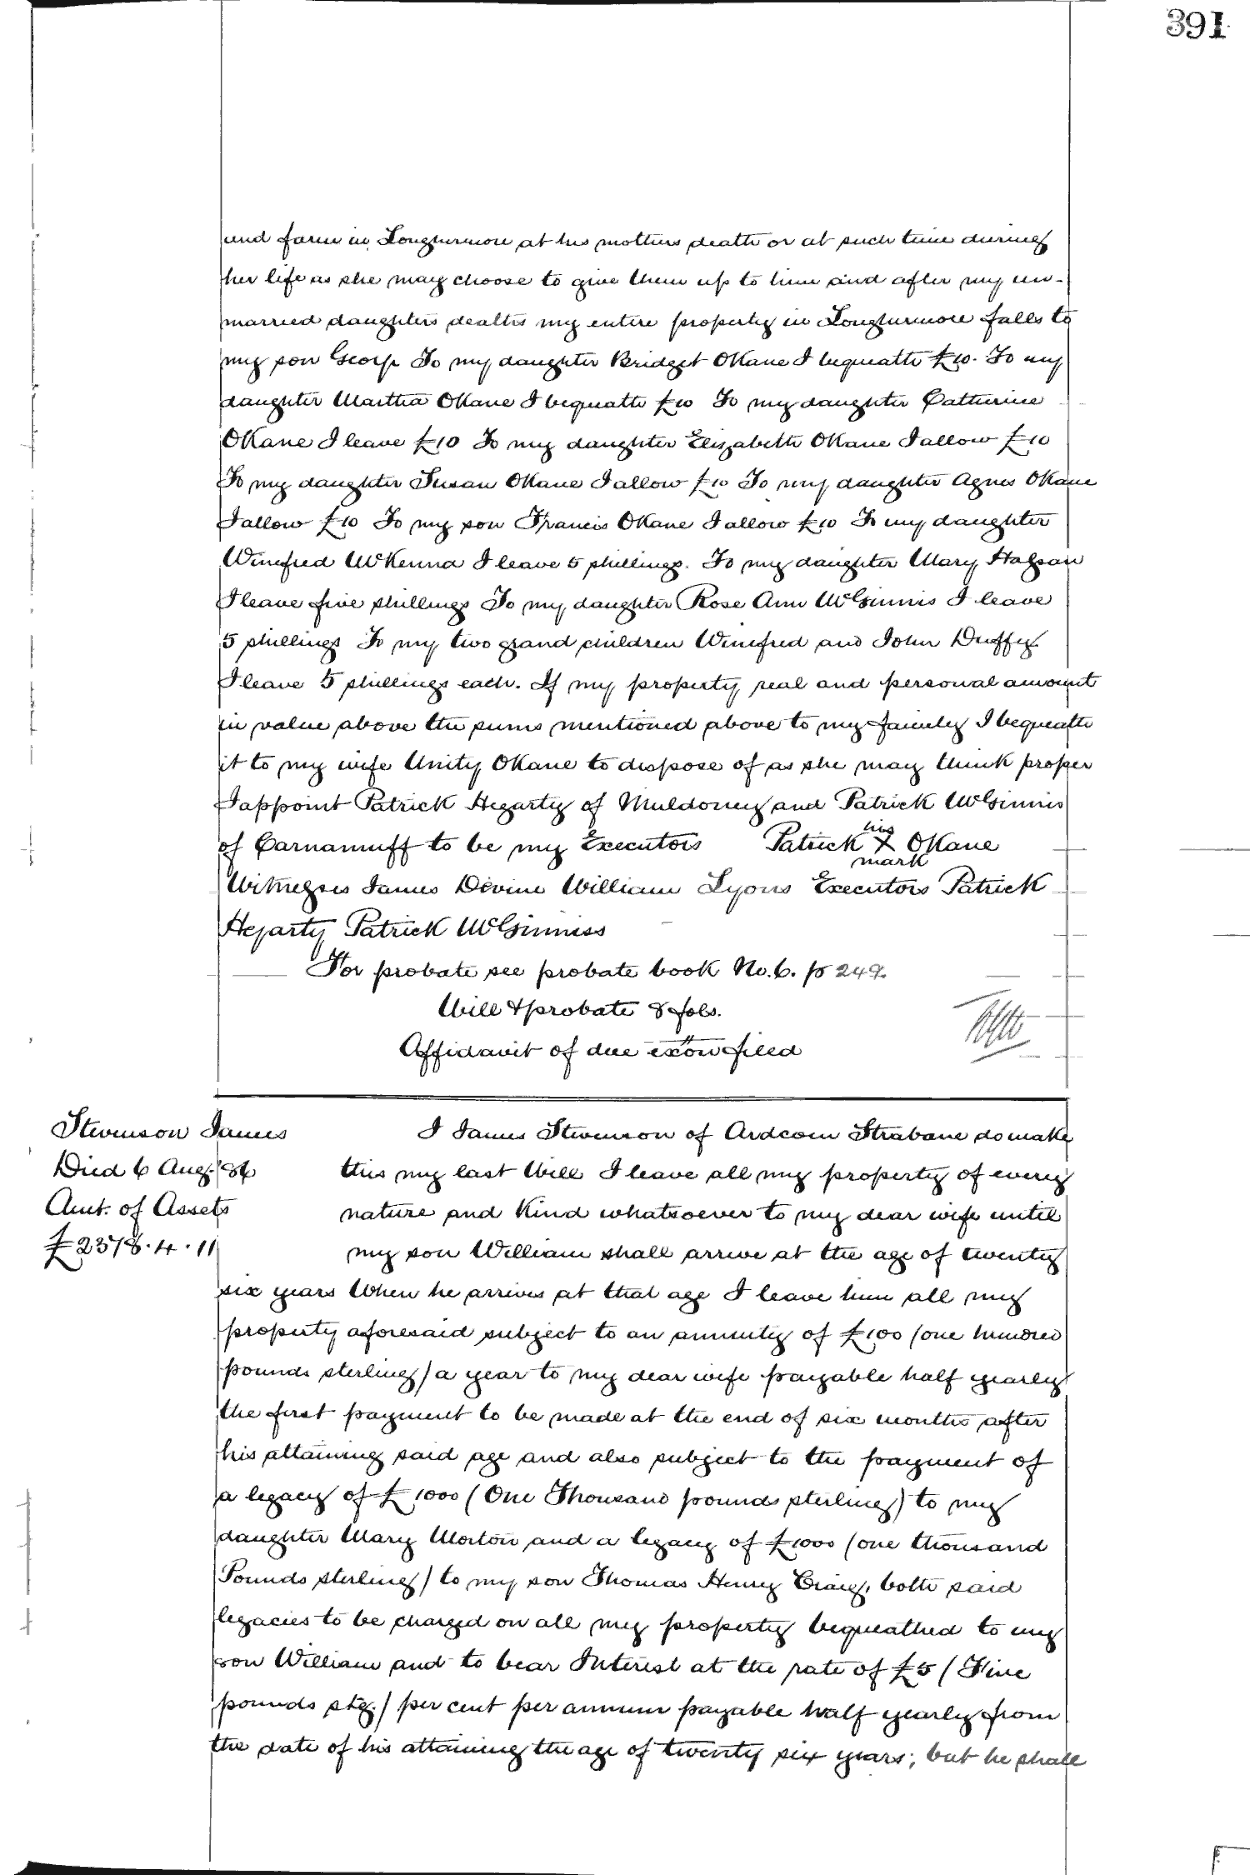 391
and farm in Longturmore at his mothers death or at such time during
her life as she may choose to give them up to him and after my un-
married daughters deaths my entire property in Longturmore falls to
my son George To my daughter Bridget OKane I bequeath £10. To my
daughter Martha OKane I bequeath £10 To my daughter Catherine
OKane I leave £10 To my daughter Elizabeth OKane I allow £10
To my daughter Susan OKane I allow £10 To my daughter Agnes OKane
I allow £10 To my son Francis OKane I allow £10 To my daughter
Winefred McKenna I leave 5 shillings. To my daughter Mary
I leave five shillings To my daughter Rose Ann McGinnis I leave
5 shillings To my two grand children Winefred and John Duffy
I leave 5 shillings each. If my property real and personal amount
in value above the sums mentioned above to my family I bequeath
it to my wife Unity OKane to dispose of as she may think proper
I appoint Patrick Hegarty of Muldoney and Patrick McGinnis
of Carnanuff to be my Executors Patrick his X mark OKane
Witnesses James Devine William Lyons Executors Patrick
Hegarty Patrick McGinniss
For probate see probate book No. 6. p 249.
Will & probate 8 fols.
Affidavit of due exton filed
Stevenson James
Died 6 Aug. '86
Amt. of Assets
£2378.4.11
I James Stevenson of Ardcoen Strabane do make
this my last Will I leave all my property of every
nature and kind whatsoever to my dear wife until
my son William shall arrive at the age of twenty
six years When he arrives at that age I leave him all my
property aforesaid subject to an annuity of £100 (one hundred
pounds sterling) a year to my dear wife payable half yearly
the first payment to be made at the end of six months after
his attaining said age and also subject to the payment of
a legacy of £1000 (One Thousand pounds sterling) to my
daughter Mary Morton and a legacy of £1000 (one thousand
Pounds sterling) to my son Thomas Henry Craig, both said
legacies to be charged on all my property bequeathed to my
son William and to bear Interest at the rate of £5 (Five
pounds stg.) per cent per annum payable half yearly from
the date of his attaining the age of twenty six years; but he shall